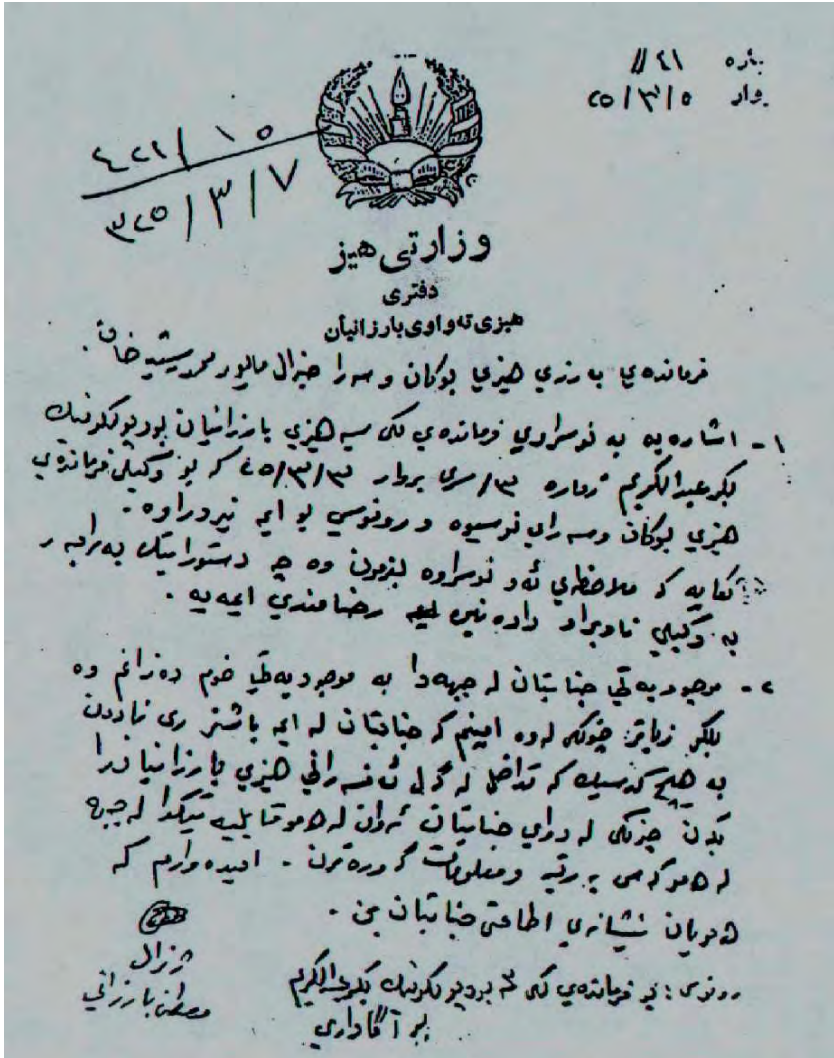 ژماره ٤١//
بروار ٢٥/٣/٥
٤٢١/١٥
٣٢٥/٣/٧
وزارتی هیز
دفتری
هیزی ته‌واوی بارزانیان
فرمانده‌ي بارزي هیزي بوکان و سه‌را جنرال مایور محمد رشید خان.
١- اشاره‌یه به نوسراوي فرمانده‌ي لکی سیه هیزي بارزانیان پودپولکونیک
بکر عبدالکریم ژماره ٣/سری بروار ٢٥/٣/٣ که بو وکیلی فرمانده‌ي
هیزي بوکان وسه‌راي نوسیوه و رونوسي بو ایمه نیردراوه.
تکایه که ملاحظه‌ي ئه‌و نوسراوه بفرمون وه چ دستوراتیک به‌رامبه‌ر
به وکیلي ناوبراو داده‌نین رضامندي ایمه‌یه.
٢- موجودیه‌تي جنابتان له جبهه‌دا به موجودیه‌تي خوم ده‌زانم وه
بلکو زیاتر چونکی له‌وه امینم که جنابتان له ایمه باشتر ری ناده‌ن
به هیچ که‌سیک که تداخل له گه‌ل ئه‌فسه‌راني هیزي بارزانیاندا
بکه‌ن چونکی له دواي جنابتان ئه‌وان له هه‌مو تیکدا له جبهه
له هه‌مو که‌س به رتبه و معلومات گه‌وره‌ترن. امیده‌وارم که
هه‌مویان نیشانه‌ي اطاعتی جنابتان بن.
ژنرال
مصطفی بارزاني
رونوس: بو فرمانده‌ي لکی ٣ پودپولکونیک بکر عبدالکریم
بو آگاداري